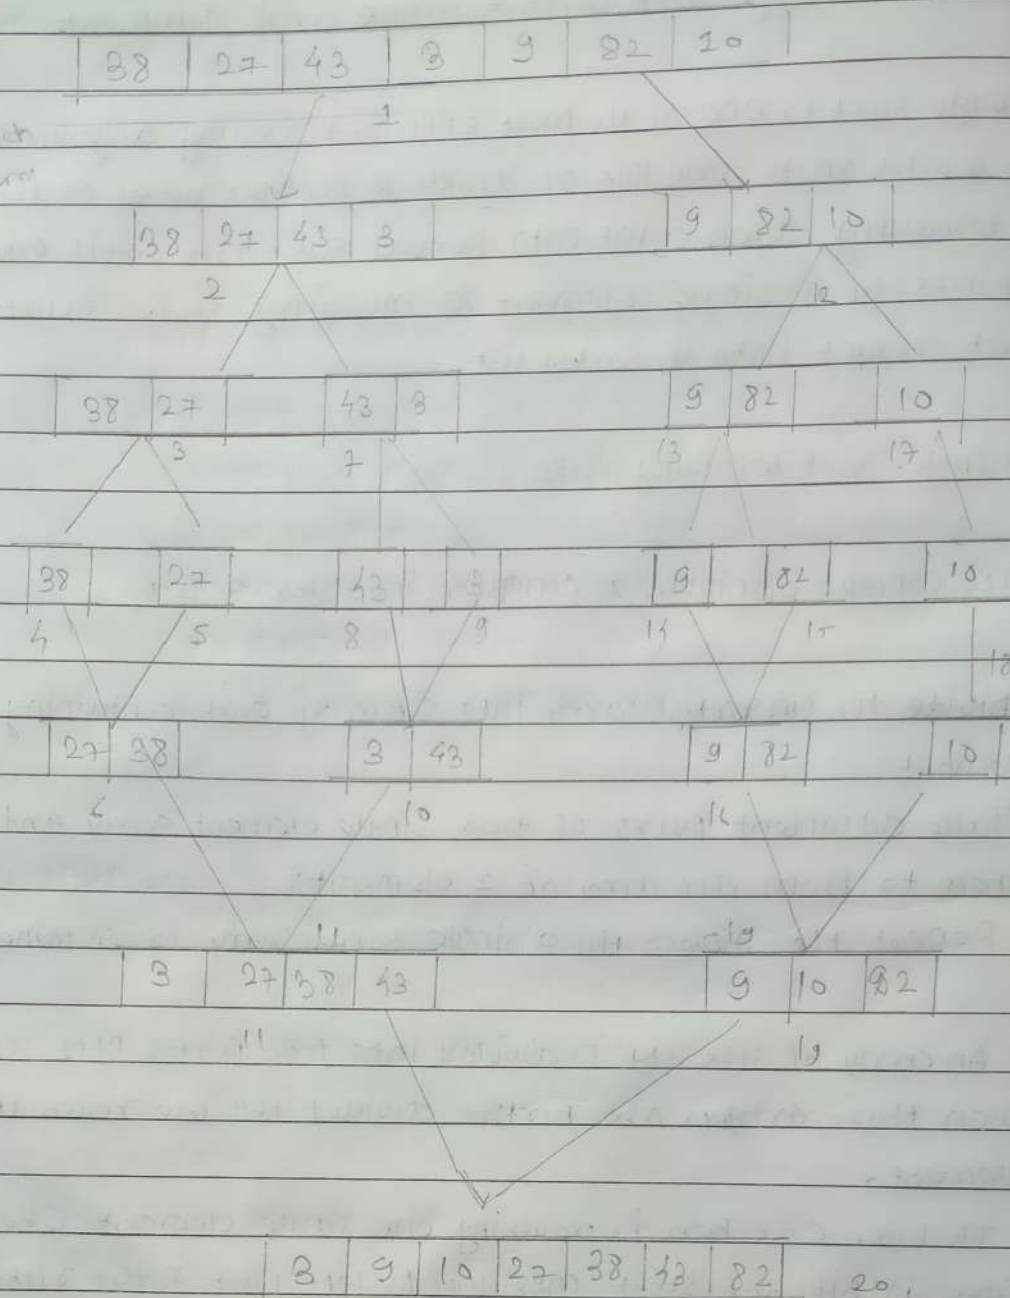 38 27 43 3 9 82 10
1
38 27 43 3 9 82 10
2 12
38 27 43 3 9 82 10
3 7 13 17
38 27 43 3 9 82 10
4 5 8 9 14 15 18
27 38 3 43 9 82 10
6 10 16
11 19
3 27 38 43 9 10 82
11 19
3 9 10 27 38 43 82 20